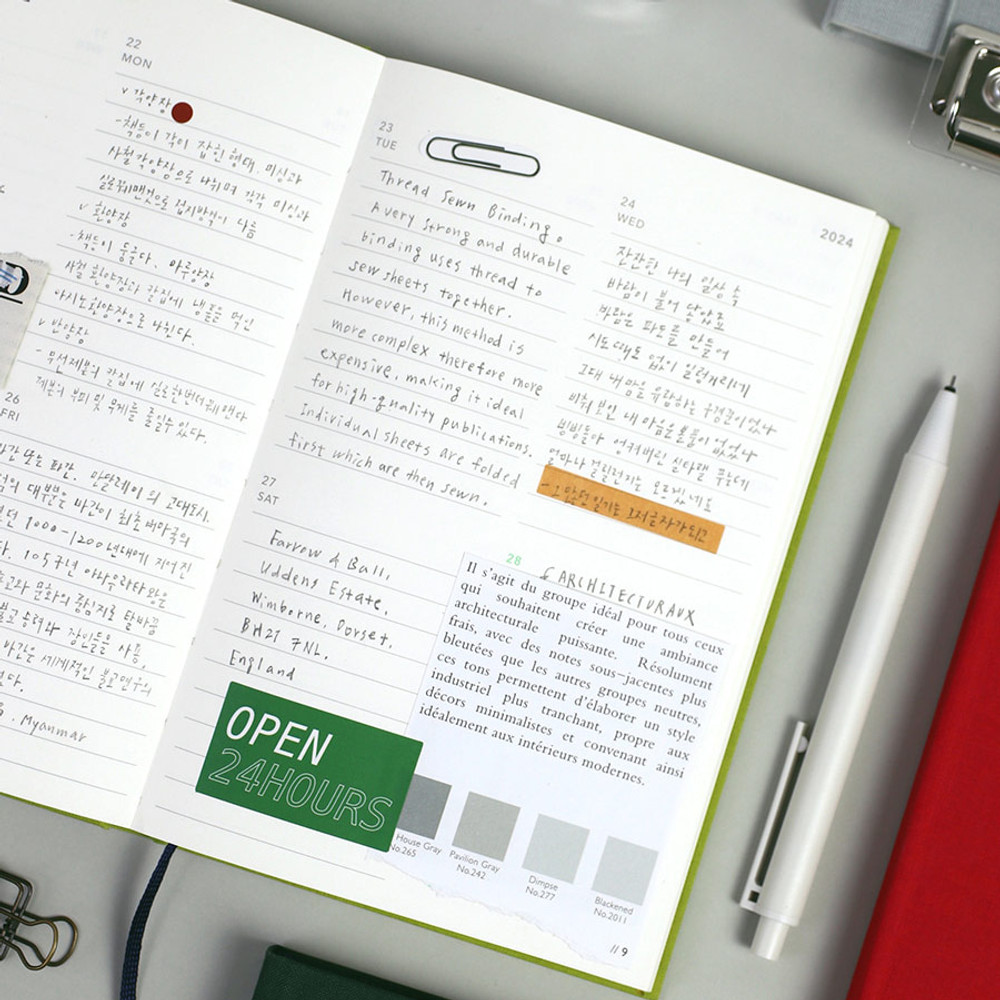 22
MON
v 각양장
-책등이 각이 잡힌 형태. 미싱과
사철각양장으로 나뉘며 각각 미싱과
실로꿰맨것으로 접지방식이 다름
v 환양장
-책등이 둥글다. 아루양장
사철 환양장과 같집에 낸풀을 먹인
아시노환양장으로 나뉜다.
v 반양장
- 무선제본의 같집에 실로한번더꿰맨다
제본의 부피 및 무게를 줄일수있다.
26
FRI
바간 또는 파간. 만달레이의 고대도시.
대부분 바간이 최초 버마족의
1000-1200년대에 지어진
다. 1057년 아나우라타왕은
불교와 문화의 중심지로 탈바꿈
장인들을 사용,
바간은 세계적인 불교연구의
Myanmar
23
TUE
Thread Sewn Binding.
A very strong and durable
binding uses thread to
sew sheets together.
However, this method is
more complex therefore more
expensive, making it ideal
for high-quality publications.
Individual sheets are folded
first which are then sewn.
24
WED
2024
잔잔한 나의 일상 중
바람이 불어 닿았고
바람은 파도를 만들어
시도때도 없이 일렁거리네
그대 내 마음을
비춰 보인 내
빙빙돌다 엉켜버린 실타랜 푸는데
얼마나 걸릴런지는 모르겠네요
27
SAT
Farrow & Ball,
Uddens Estate,
Wimborne, Dorset,
BH21 7NL.
England
OPEN
24HOURS
28
ARCHITECTURAUX
Il s'agit du groupe idéal pour tous ceux
qui souhaitent créer une ambiance
architecturale puissante. Résolument
frais, avec des notes sous-jacentes plus
bleutées que les autres groupes neutres,
ces tons permettent d'élaborer un style
industriel plus tranchant, propre aux
décors minimalistes et convenant ainsi
idéalement aux intérieurs modernes.
House Gray
No.265
Pavilion Gray
No.242
Dimpse
No.277
Blackened
No.2011
// 9